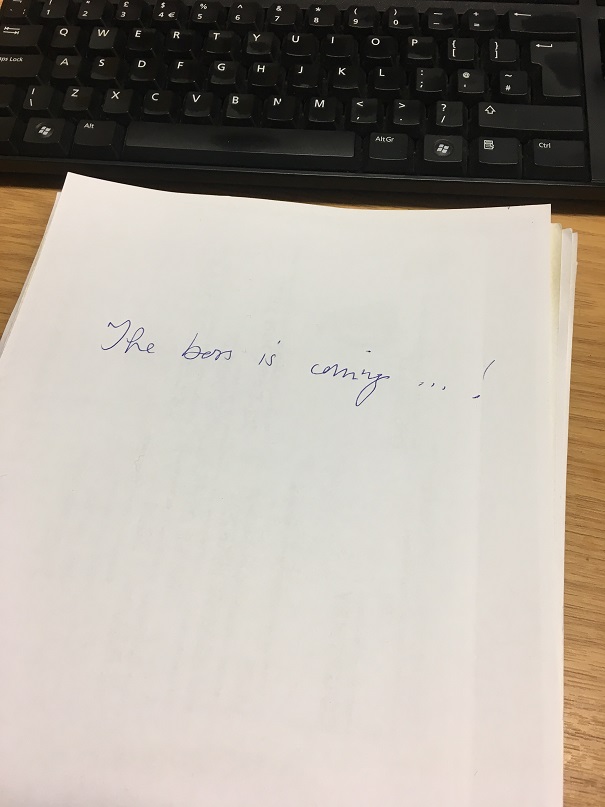 ! " £ $ % ^ & * ( ) _ +
1 2 3 4 € 5 6 7 8 9 0 - =
Q W E R T Y U I O P { [ } ]
Caps Lock A S D F G H J K L : ; @ ' ~ #
| \ Z X C V B N M < , > . ? /
Alt Alt Gr Ctrl
The boss is coming ... !